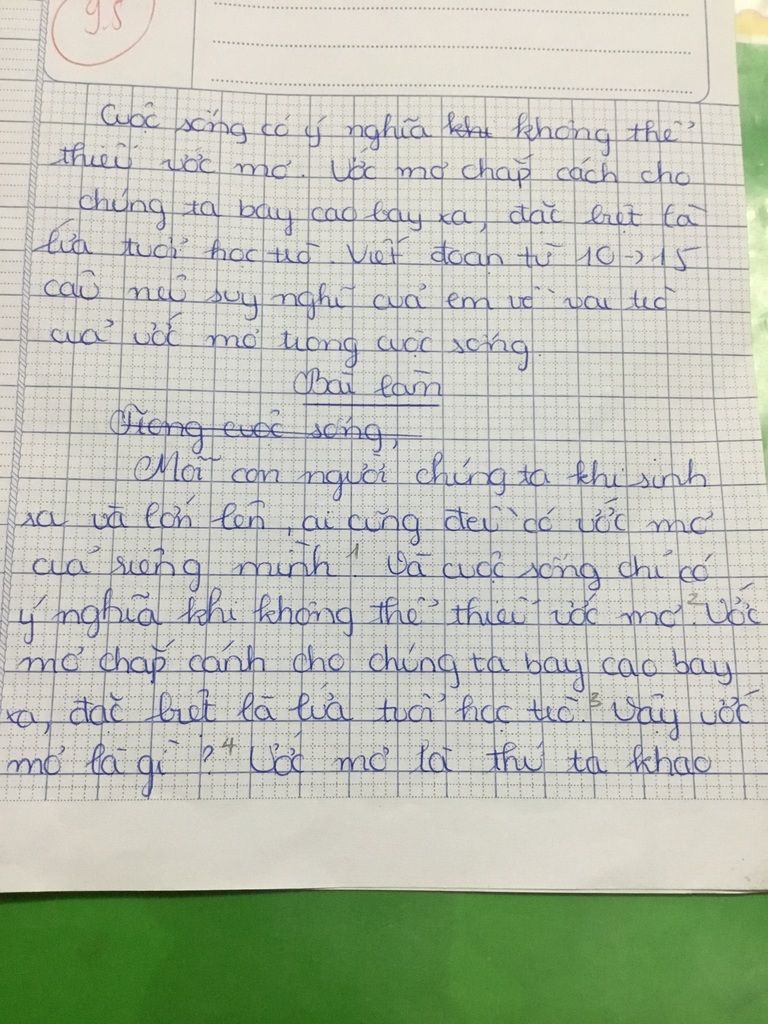 9.5
Cuộc sống có ý nghĩa khi không thể
thiếu ước mơ. Ước mơ chắp cách cho
chúng ta bay cao bay xa, đặc biệt là
lứa tuổi học trò. Viết đoạn từ 10 → 15
câu nêu suy nghĩ của em về vai trò
của ước mơ trong cuộc sống.
Bài làm
Trong cuộc sống,
Mỗi con người chúng ta khi sinh
ra và lớn lên, ai cũng đều có ước mơ
của riêng mình.1 Và cuộc sống chỉ có
ý nghĩa khi không thể thiếu ước mơ.2 Ước
mơ chắp cánh cho chúng ta bay cao bay
xa, đặc biệt là lứa tuổi học trò.3 Vậy ước
mơ là gì ?4 Ước mơ là thứ ta khao